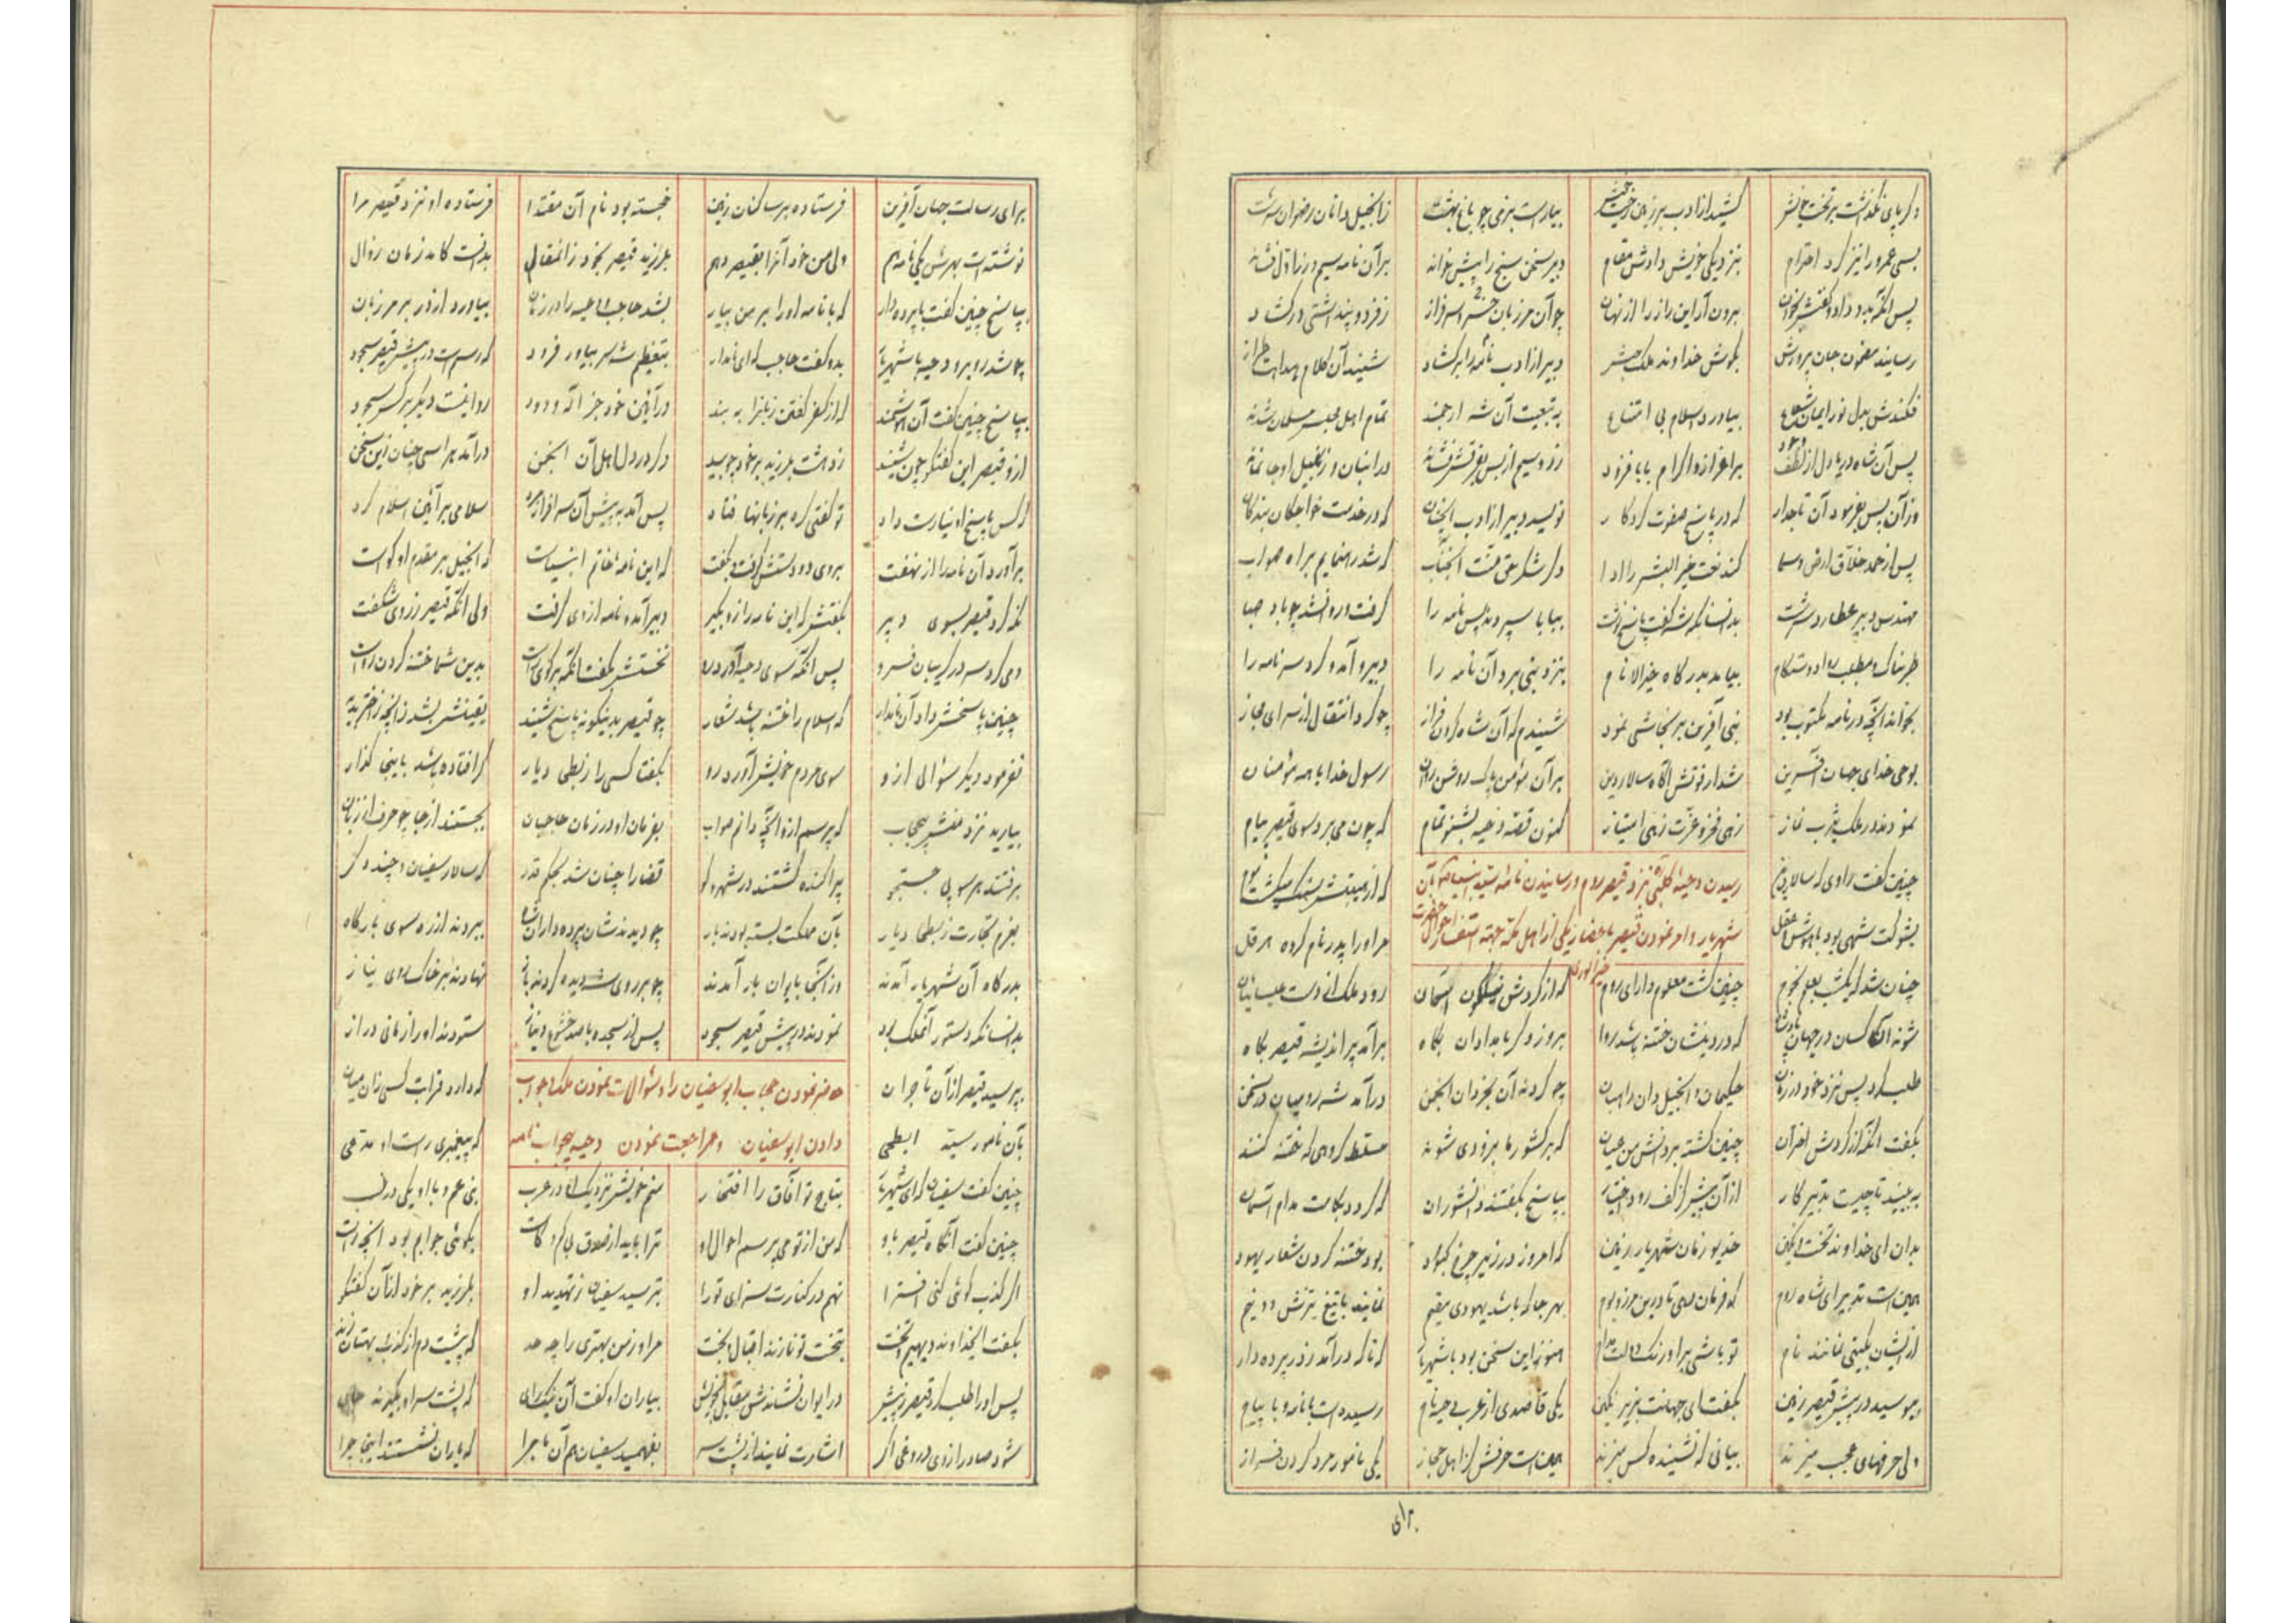 دگر پای نگذاشت بر تخت خویش کشید از ادب بر زمین رخت خویش بیاراست بزمی چو باغ بهشت ز انجیل دانان رضوان سرشت
بسی عمرو را نیز کرد احترام بنزدیکی خویش دادش مقام دبیر سخن سنج را پیش خواند بر آن نامه سیم و زر اول فشاند
پس آنگه بدو داد و گفتش بخوان برون آر این راز را از نهان چو آن مرزبان خسرو سرفراز ز فرد و پند اشتی در گشاد
رسانید مضمون جان پرورش بگوش خداوند ملک حبش دبیر از ادب نامه را برگشاد شنید آن کلام هدایت طراز
فکندش بدل نور ایمان شعاع بیاورد اسلام بی امتناع به تبعیت آن شه ارجمند تمام اهل مجلس مسلمان شدند
پس آن شاه دریا دل از لطف وجود بر اعزاز و اکرام بابا فزود زر و سیم از بس بفرقش فشاند در انبان و زنبیل او جا نماند
وز آن پس بفرمود آن تاجدار که در پاسخ صفوت کردگار نویسد دبیر از ادب آنچنان که در خدمت خواجگان بندگان
پس از حمد خلاق ارض و سما کند نعت خیر البشر را ادا دگر شکر حق منت آنجناب که شد رهنمایم براه صواب
مهندس دبیر عطارد سرشت بدانسان که شه گفت پاسخ نوشت ببابا سپردند پس نامه را گرفت و روان شد چو باد صبا
طربناک و مطلب روا دوستکام بیامد بدرگاه خیر الانام بنزد نبی برد آن نامه را دبیر آمد و کرد سر نامه را
بخواند آنچه در نامه مکتوب بود نبی آفرین بر نجاشی نمود شنیدم که آن شاه گردن فراز چو کرد انتقال از سرای مجاز
بوحی خدای جهان آفرین شد از فوتش آگاه سالار دین بر آن مؤمن پاک روشن روان رسول خدا با همه مؤمنان
نمودند در ملک یثرب نماز زهی فخر و عزت زهی امتیاز کنون قصه دحیه بشنو تمام که چون می برد سوی قیصر پیام
رسیدن دحیه کلبی نزد قیصر روم و رسانیدن نامه سید انبیا بآن
شهریار و امر نمودن قیصر باحضار یکی از اهل مکه جهته استفسار احوال حضرت خیر الوری
چنین گفت راوی که سالار روم که از هیبتش سنگ میگشت موم
بشوکت شهی بود با هوش و عقل مر او را پدر نام کرده هرقل
چنان شد که یکشب بعلم نجوم چنین گشت معلوم دارای روم که از گردش نیلگون آسمان رود ملک از دست عیسائیان
شوند آن کسان در جهان پادشاه که در دینشان ختنه باشد روا بروز دگر بامدادان پگاه برآمد پر اندیشه قیصر بگاه
طلب کرد پس نزد خود در زمان حکیمان و انجیل دان راهبان چو کردند آن بخردان انجمن درآمد شه رومیان در سخن
بگفت آنگه از گردش اختران چنین گشته بر دانش من عیان که بر کشور ما بزودی شوند مسلط گروهی که ختنه کنند
ببینید تا چیست تدبیر کار از آن پیش کز کف رود اختیار بپاسخ بگفتند دانشوران که گردد بکامت مدام آسمان
بدان ای خداوند تخت و نگین خدیو زمان شهریار زمین که امروز در زیر چرخ کبود بود ختنه کردن شعار یهود
همین است تدبیر ای شاه روم که فرمان دهی تا درین مرز و بوم بهر جا که باشد یهودی مقیم نمایند با تیغ تیزش دو نیم
از ایشان بگیتی نماند نام تو باشی بر اورنگ دولت مدام هنوز این سخن بود با شهریار که ناگه درآمد ز در پرده دار
ببوسید در پیش قیصر زمین بگفت ای جهانت بزیر نگین یکی قاصدی از عرب دحیه نام رسیده است با نامه و با پیام
ولی حرفهای عجب میزند بیانی که نشنیده کس میزند همین است حرفش کز اهل حجاز یکی نامور مرد گردن فراز
برای
برای رسالت جهان آفرین فرستاده بر ساکنان زمین خجسته بود نام آن مقتدا فرستاده او نزد قیصر مرا
نوشته است بهرش یکی نامه هم ولی من خود آنرا بقیصر دهم بلرزید قیصر بخود زانمقال بدانست کامد زمان زوال
بپاسخ چنین گفت با پرده دار که با نامه او را بر من بیار بشد حاجب و دحیه را در زمان بیاورد از در بر مرزبان
چو شد روبرو دحیه با شهریار بدو گفت حاجب که ای نامدار بتعظیم شه سر بیاور فرود که رسم است در پیش قیصر سجود
بپاسخ چنین گفت آن هوشمند که از کفر گفتن زبانرا ببند در آئین خود جز اله ودود روا نیست دیگر بر کس سجود
ازو قیصر این گفتگو چون شنید ز دهشت بلرزید بر خود چو بید دگر در دل اهل آن انجمن درآمد هراسی چنان زین سخن
که کس پاسخ او نیارست داد تو گفتی گره بر زبانها فتاد پس آمد به پیش آن سرافراز مرد سلامی بر آئین اسلام کرد
برآورد آن نامه را از نهفت بروی دو دستش گرفت و بگفت که این نامه خاتم انبیاست که انجیل بر مقدم او گواست
نگه کرد قیصر بسوی دبیر بگفتش که این نامه را زو بگیر دبیر آمد و نامه از وی گرفت ولی آنگه قیصر ز روی شگفت
دمی کرد سر در گریبان فرو پس آنگه سوی دحیه آورد رو نخستش بگفت آنکه بر گوی راست بدین شما ختنه کردن رواست
چنین پاسخش داد آن نامدار که اسلام را ختنه باشد شعار چو قیصر بدینگونه پاسخ شنید یقینش بشد زانچه ز اختر بدید
نفرمود دیگر سؤالی ازو سوی مردم خویش آورد رو بگفتا کسی را ز بطحی دیار گر افتاده باشد باینجا گذار
بیارید نزد منش بیحجاب که پرسم ازو آنچه دانم صواب بفرمان او در زمان حاجبان بجستند از جا چو حرف از زبان
برفتند هر سو پی جستجو پراکنده گشتند در شهر و کو قضا را چنان شد بحکم قدر که سالار سفیان و چند دگر
بعزم تجارت ز بطحا دیار بآن مملکت بسته بودند بار چو دیدندشان پرده داران شاه ببردند از ره سوی بارگاه
بدرگاه آن شهریار آمدند وز آنجا بایوان بار آمدند چو بر روی شه دیده کردند باز نهادند بر خاک روی نیاز
بدانسان که دستور آنملک بود نمودند در پیش قیصر سجود پس از سجده با صد خشوع و نیاز ستودند او را زمانی دراز
حاضر نمودن حجاب ابوسفیان را و سؤالات نمودن ملک و جواب
دادن ابوسفیان و مراجعت نمودن دحیه بجواب نامه
بپرسید قیصر از آن تاجران که دارد قرابت کسی زان میان
بآن نامور سید ابطحی که پیغمبری راست او مدعی
چنین گفت سفیان که ای شهریار بتاج تو آفاق را افتخار منم خویش نزدیک او در عرب بنی عم و با او یکی در نسب
چنین گفت آنگاه قیصر باو که من از تو می پرسم احوال او ترا باید از صدق بی کم و کاست بگوئی جوابم بود آنچه راست
اگر کذب گوئی کنی افترا نهم در کنارت سزای تو را بترسید سفیان ز تهدید او بلرزید بر خود از آن گفتگو
بگفت ای خداوند دیهیم و تخت بتخت تو نازنده اقبال و بخت مرا و ز من بهتری را چه حد که پیشت دم از کذب و بهتان زند
پس او را طلب کرد قیصر ز پیش در ایوان نشاندش مقابل بخویش بیاران او گفت آن نیکرای که پشت سر او بگیرند جای
شود صادر از وی دروغی اگر اشارت نمایند از پشت سر بفهمید سفیان هم آن ماجرا که یاران نشستند اینجا چرا